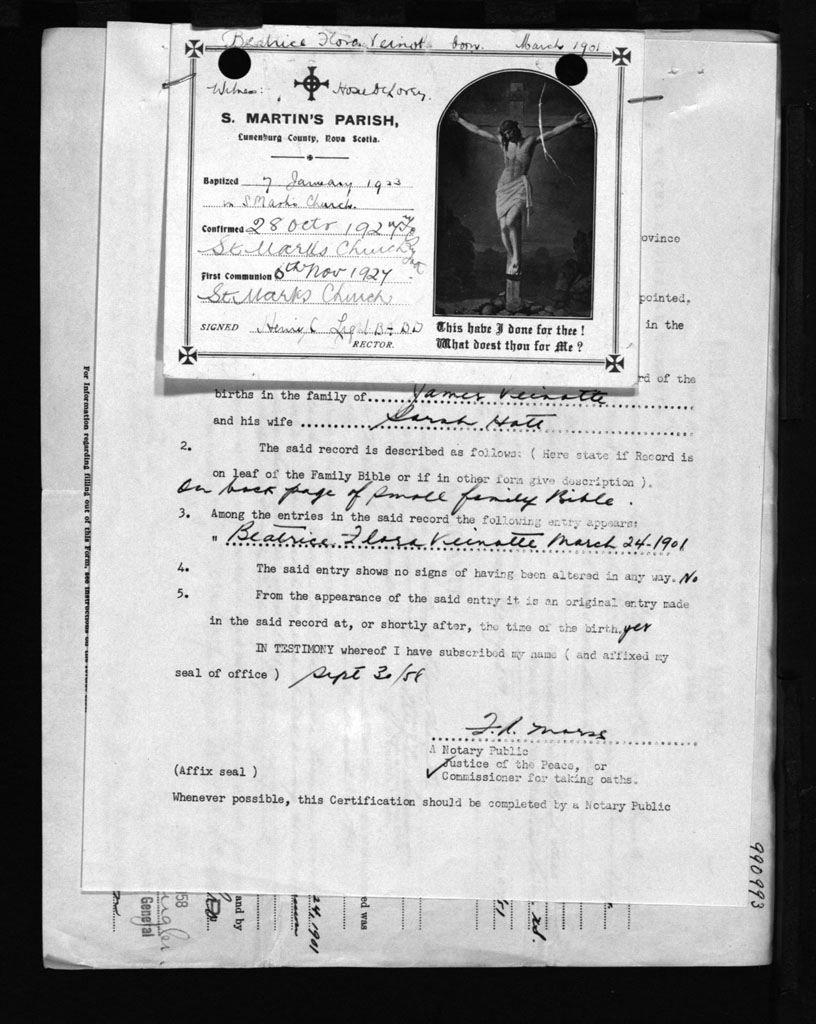 Beatrice Flora Veinot born March 1901
Witness:
S. MARTIN'S PARISH,
Lunenburg County, Nova Scotia.
Baptized 7 January 1923
in S Marks Church.
Confirmed 28 Octr 1927
St. Marks Church
First Communion 6th Nov 1927
St. Marks Church
SIGNED Henry C
RECTOR.
This have I done for thee!
What doest thou for Me?
ovince
pointed,
in the
rd of the
births in the family of James Veinotte
and his wife Sarah Hatt
2. The said record is described as follows: ( Here state if Record is
on leaf of the Family Bible or if in other form give description ).
On back page of small family Bible.
3. Among the entries in the said record the following entry appears:
" Beatrice Flora Veinotte March 24-1901
4. The said entry shows no signs of having been altered in any way. No
5. From the appearance of the said entry it is an original entry made
in the said record at, or shortly after, the time of the birth, yes
IN TESTIMONY whereof I have subscribed my name ( and affixed my
seal of office ) Sept 30/58
A Notary Public
Justice of the Peace, or
Commissioner for taking oaths.
(Affix seal )
Whenever possible, this Certification should be completed by a Notary Public
For information regarding filling out of this Form, see instructions on
990993
58
General
and by
24, 1901
ed was